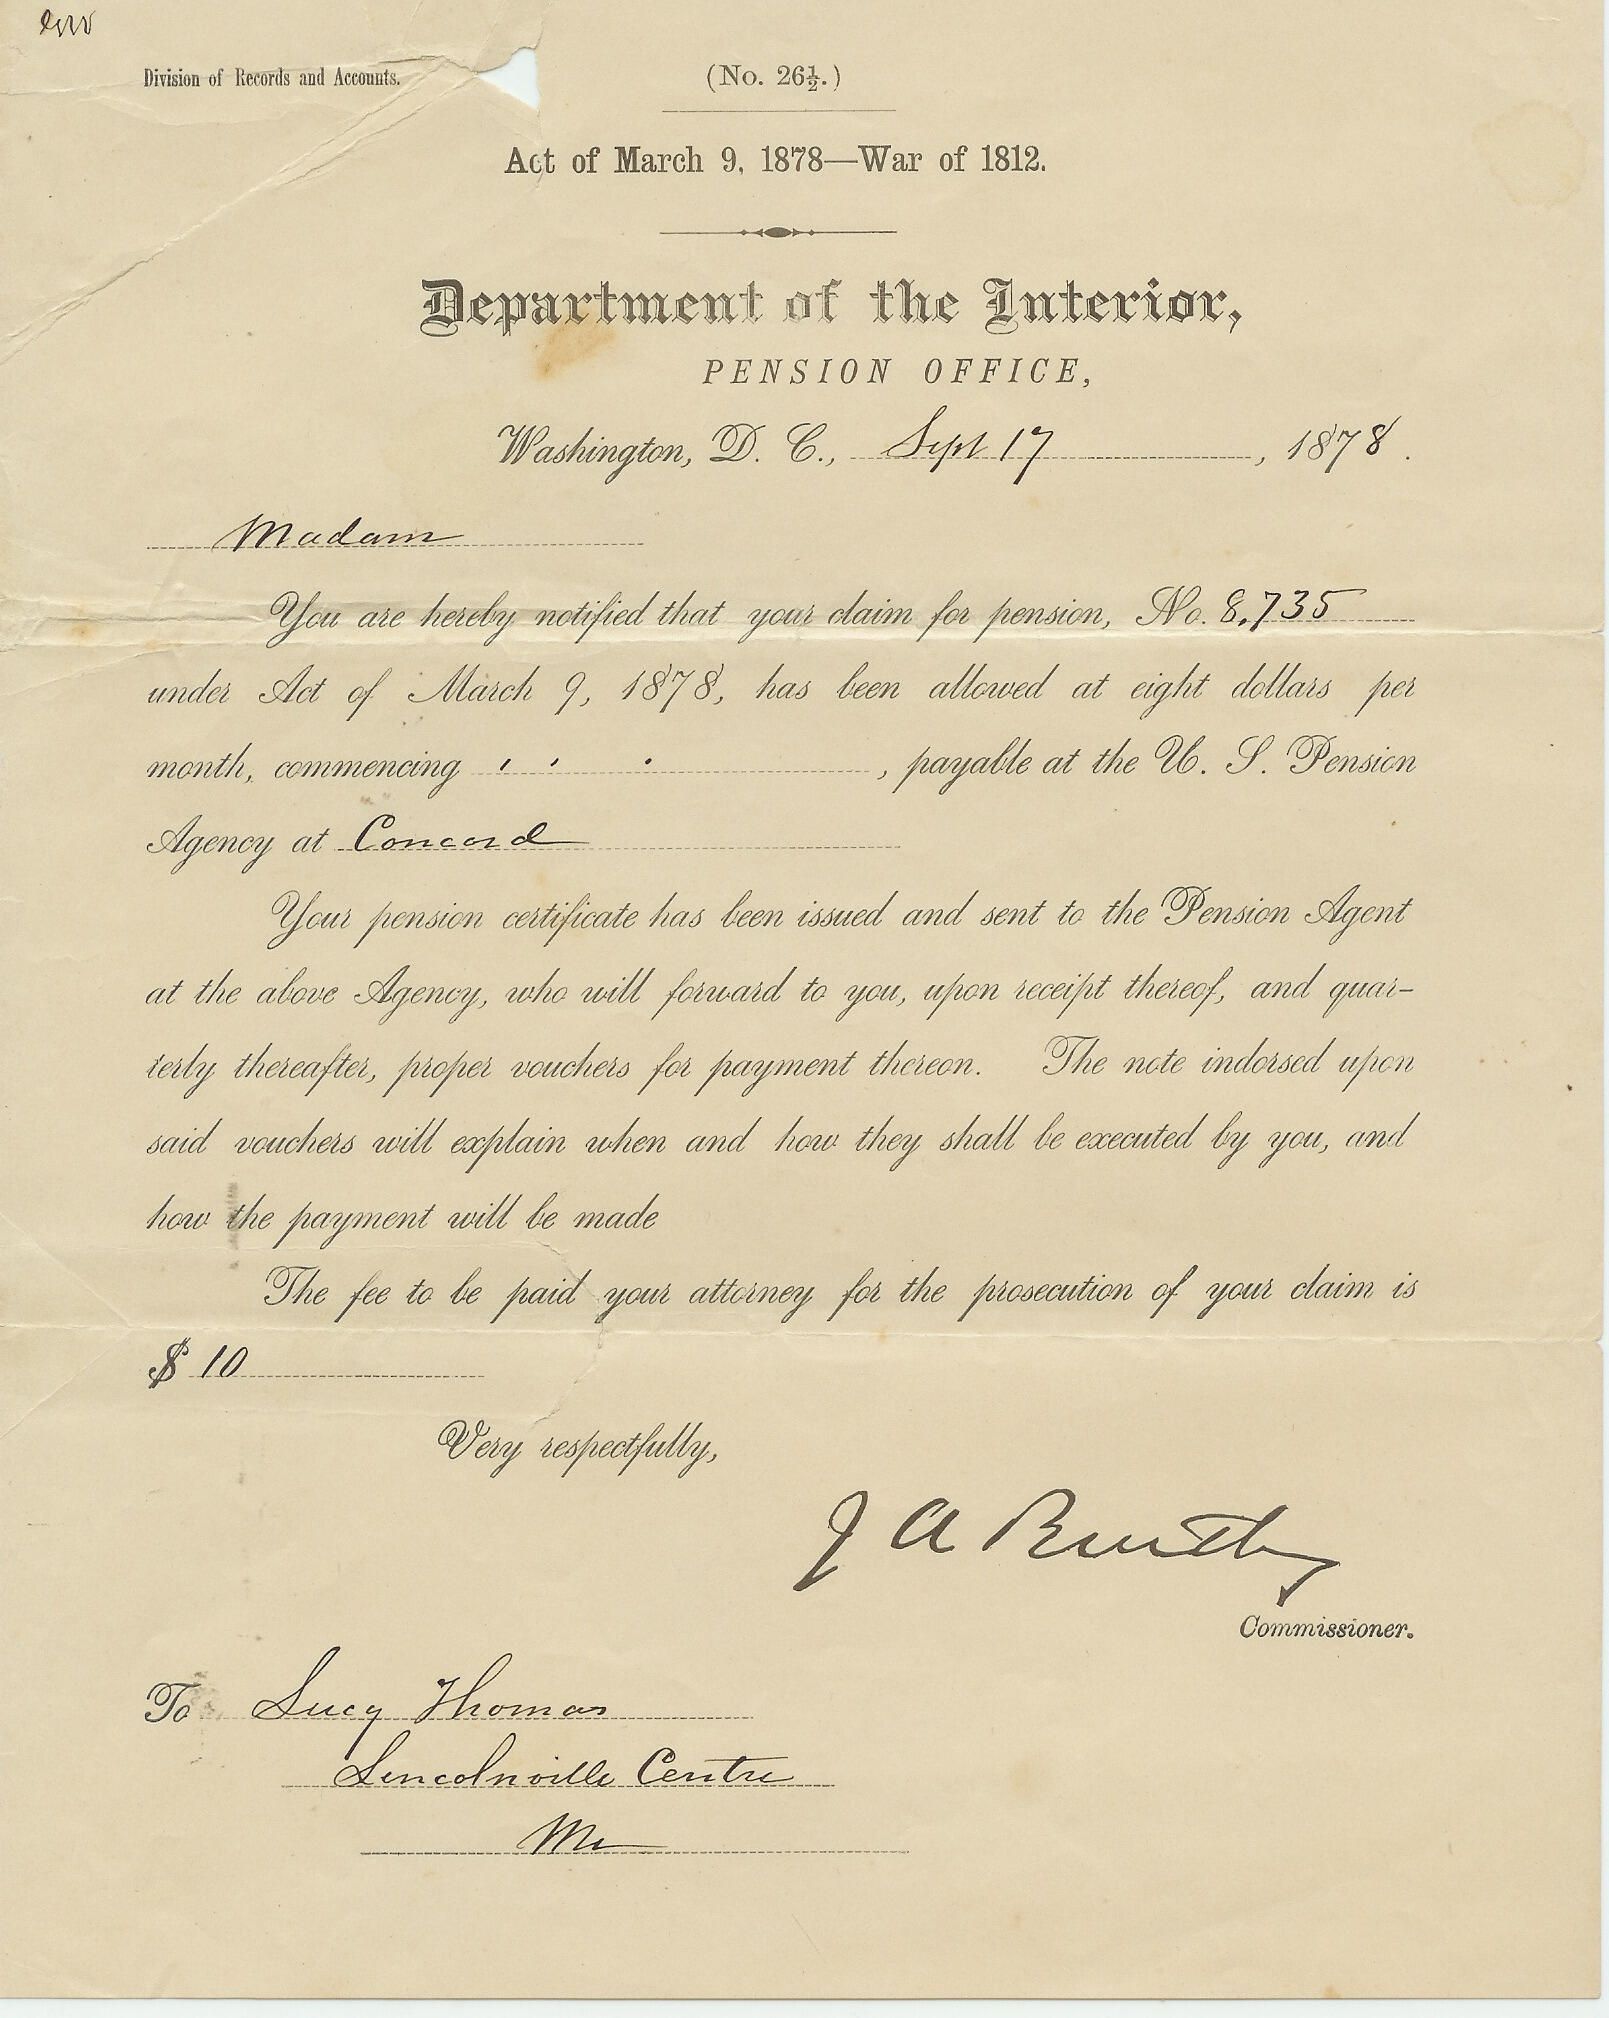 Division of Records and Accounts.
(No. 26½.)
Act of March 9, 1878—War of 1812.
Department of the Interior,
PENSION OFFICE,
Washington, D. C., Sept 17, 1878.
Madam
You are hereby notified that your claim for pension, No. 8,735
under Act of March 9, 1878, has been allowed at eight dollars per
month, commencing , payable at the U. S. Pension
Agency at Concord
Your pension certificate has been issued and sent to the Pension Agent
at the above Agency, who will forward to you, upon receipt thereof, and quar-
terly thereafter, proper vouchers for payment thereon. The note indorsed upon
said vouchers will explain when and how they shall be executed by you, and
how the payment will be made
The fee to be paid your attorney for the prosecution of your claim is
$ 10
Very respectfully,
J A Bentley
Commissioner.
To Lucy Thomas
Lincolnville Centre
Me